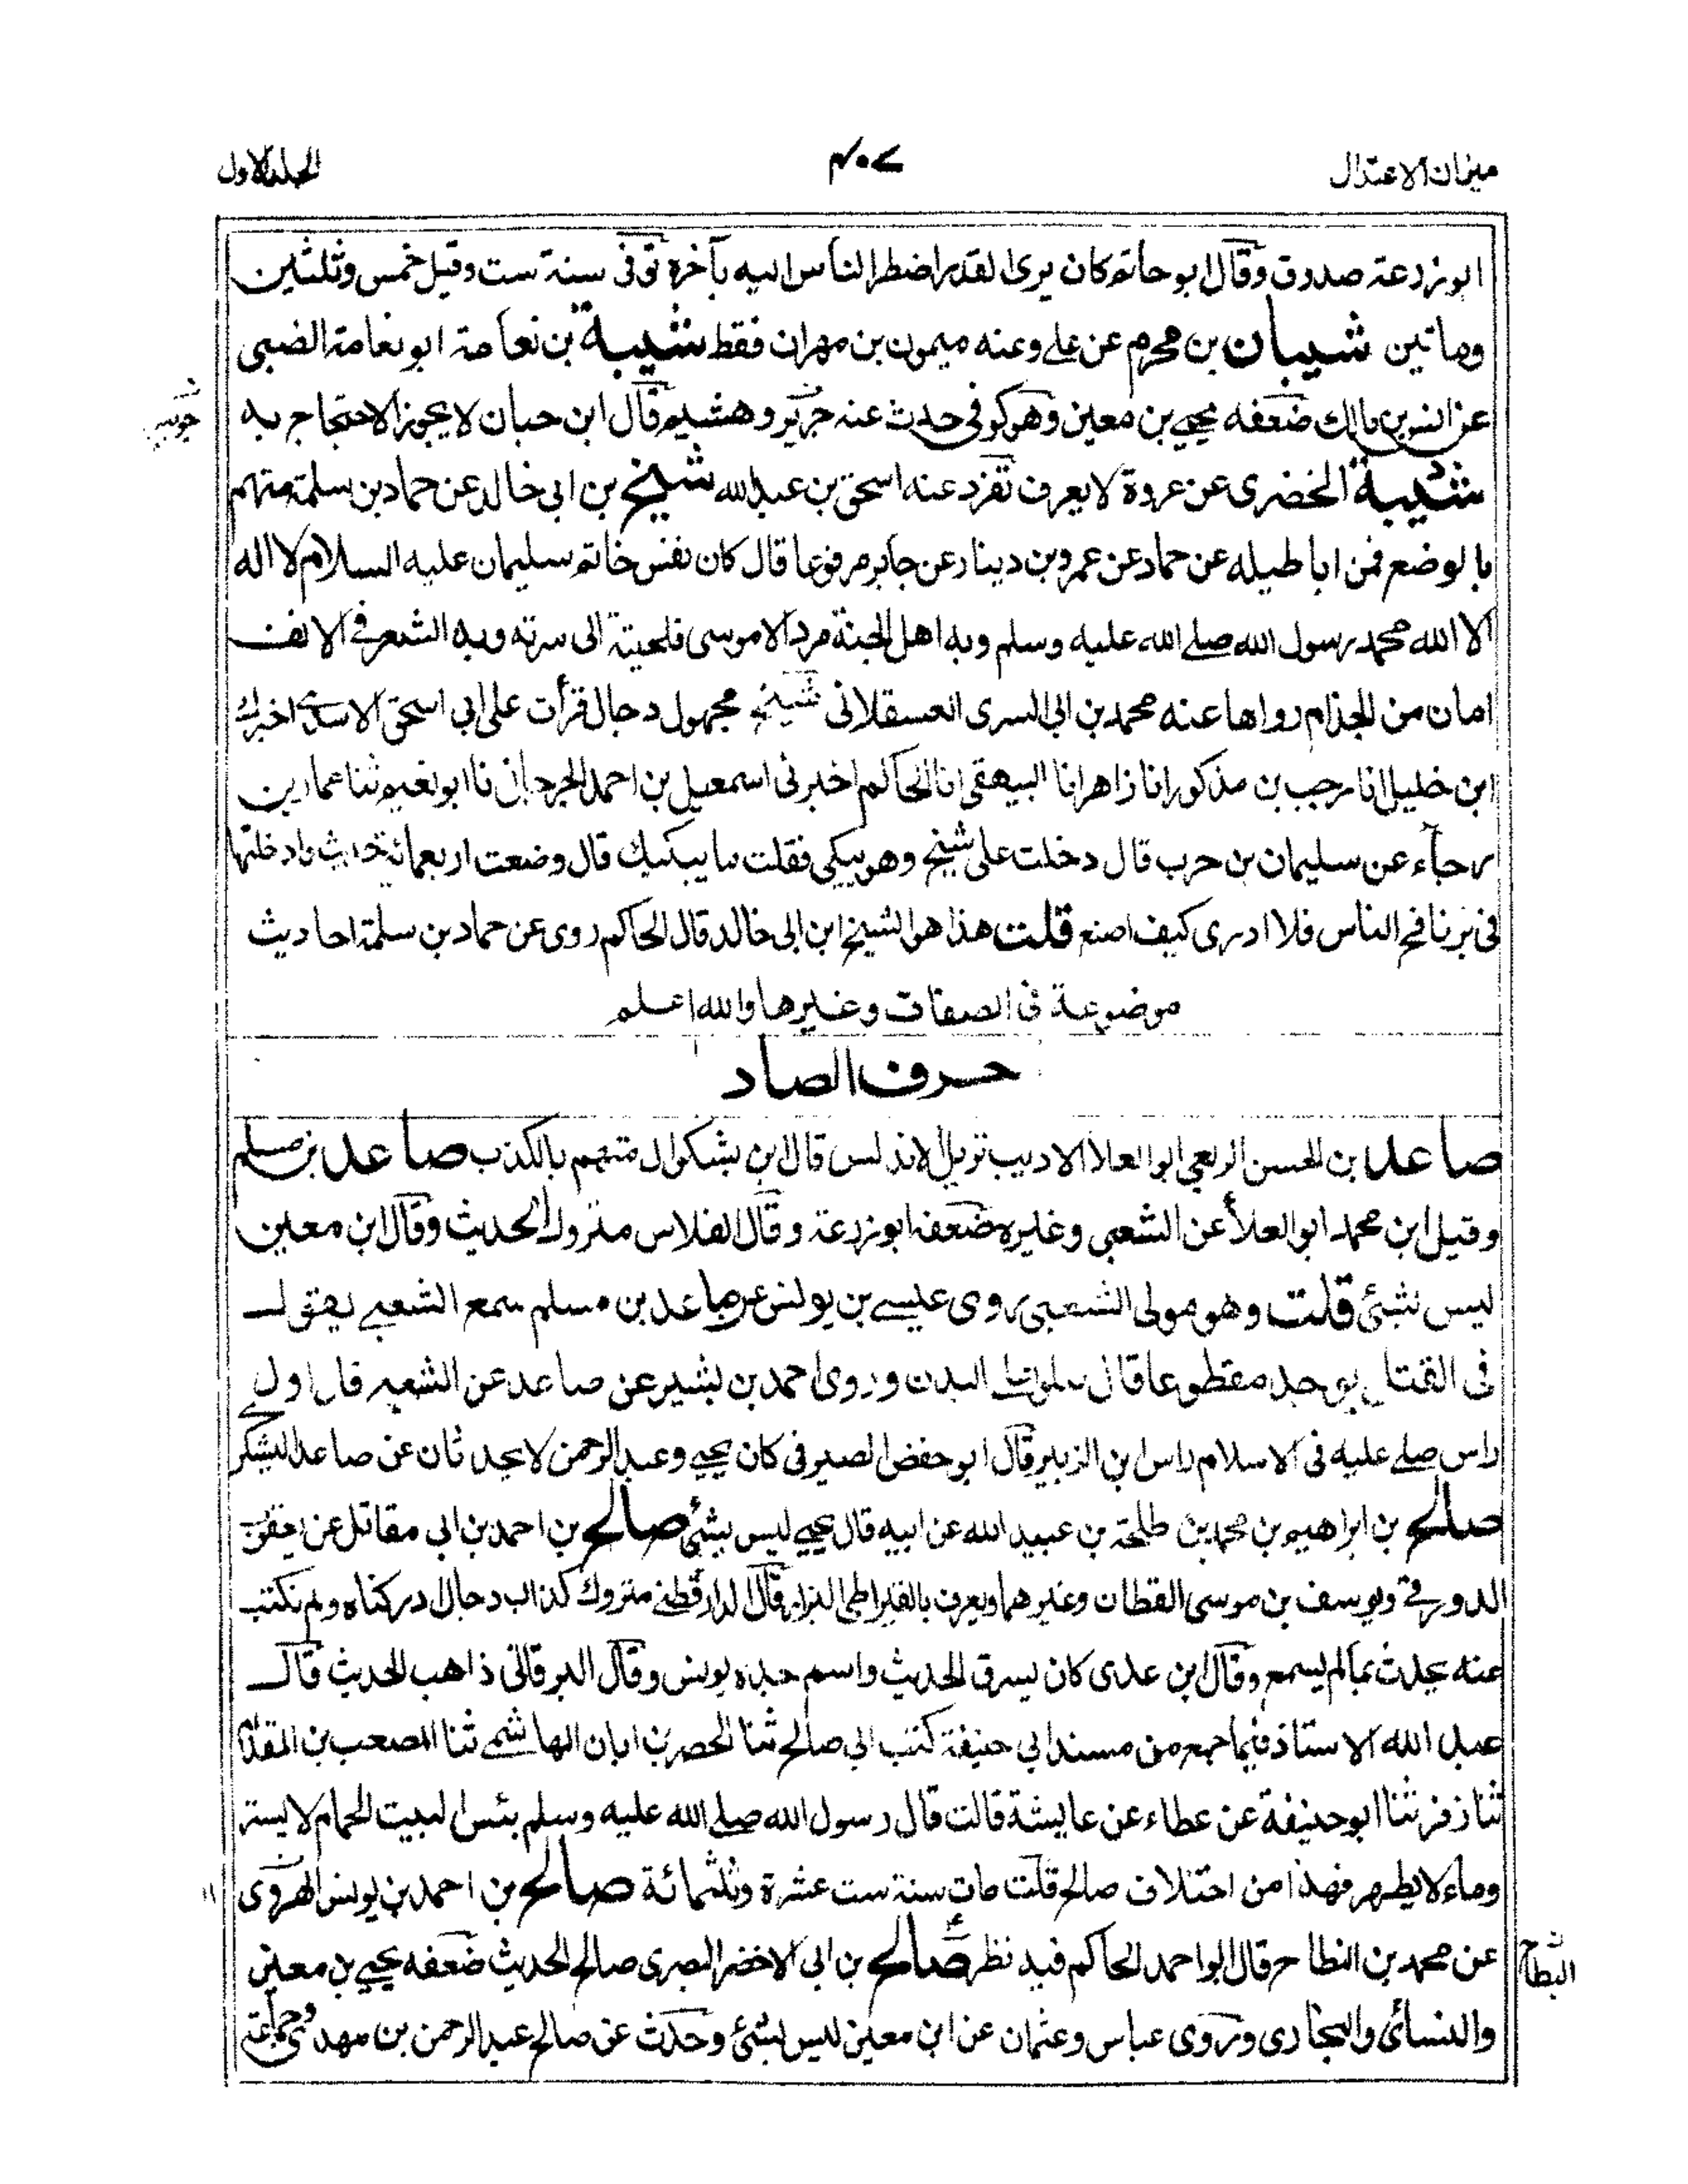 ميزان الاعتدال
٤٠٧
الجلد الاول
ابو زرعة صدوق وقال ابو حاتم كان يرى القدر اضطر الناس اليه بآخره توفى سنة ست وقيل خمس وثلثين
وماتين شيبان بن محرم عن على وعنه ميمون بن مهران فقط شيبة بن نعامة ابو نعامة الضبى
عن انس بن مالك ضعفه يحيى بن معين وهو كوفى حدث عنه جرير وهشيم قال ابن حبان لا يجوز الاحتجاج به
شيبة الخضرى عن عروة لا يعرف تفرد عنه اسحق بن عبدالله شيخ بن ابى خالد عن حماد بن سلمة متهم
بالوضع فمن اباطيله عن حماد عن عمرو بن دينار عن جابر مرفوعا قال كان نقش خاتم سليمان عليه السلام لا اله
الا الله محمد رسول الله صلے الله عليه وسلم وبه اهل الجنة مرد الا موسى فلحيتة الى سرته وبه الشعر فى الانف
امان من الجذام رواها عنه محمد بن ابى السرى العسقلانى شيخ مجهول دجال قرأت على ابى اسحق الاسدى اخبرك
ابن خليل انا رجب بن مذكور انا زاهر انا البيهقى انا الحاكم اخبرنى اسمعيل بن احمد الجرجانى نا ابو نعيم ثنا عمار بن
رجآء عن سليمان بن حرب قال دخلت على شيخ وهو يبكى فقلت ما يبكيك قال وضعت اربعمائة حديث وادخلتها
فى برنامج الناس فلا ادرى كيف اصنع قلت هذا هو الشيخ ابن ابى خالد قال الحاكم روى عن حماد بن سلمة احاديث
موضوعة فى الصفات وغيرها والله اعلم
حرف الصاد
صاعد بن الحسن الربعى ابو العلاء الاديب نزيل الاندلس قال ابن بشكوال متهم بالكذب صاعد بن مسلم
وقيل ابن محمد ابو العلأ عن الشعبى وغيره ضعفه ابو زرعة وقال الفلاس متروك الحديث وقال ابن معين
ليس بشئ قلت وهو مولى الشعبى روى عيسے بن يونس عن صاعد بن مسلم سمع الشعبے يقول
فى القتيل يوجد مقطوعا قال صلوا على البدن وروى احمد بن بشير عن صاعد عن الشعبے قال اول
راس صلے عليه فى الاسلام راس ابن الزبير قال ابو حفص الصيرفى كان يحيے وعبد الرحمن لا يحدثان عن صاعد اليشكرى
صالح بن ابراهيم بن محمد بن طلحة بن عبيد الله عن ابيه قال يحيے ليس بشئ صالح بن احمد بن ابى مقاتل عن يعقوب
الدورقے ويوسف بن موسى القطان وغيرهما ويعرف بالقيراطى البزاز قال الدارقطنے متروك كذاب دجال ادركناه ولم نكتب
عنه يحدث بما لم يسمع وقال ابن عدى كان يسرق الحديث واسم جده يونس وقال البرقانى ذاهب الحديث قال
عبد الله الاستاذ فيما جمع من مسند ابى حنيفة كتب الى صالح ثنا الخضر بن ابان الهاشمے ثنا المصعب بن المقدام
ثنا زفر ثنا ابو حنيفة عن عطاء عن عايشة قالت قال رسول الله صلے الله عليه وسلم بئس البيت الحمام لا يستر
وماء لا يطهر فهذا من اختلاق صالح قلت مات سنة ست عشرة وثلثمائة صالح بن احمد بن يونس الهروى
عن محمد بن النطاح قال ابو احمد الحاكم فيه نظر صالح بن ابى الاخضر البصرى صالح الحديث ضعفه يحيے بن معين
البطاح
والنسائى والبخارى وروى عباس وعثمان عن ابن معين ليس بشئ وحدث عن صالح عبد الرحمن بن مهدى وجماعة